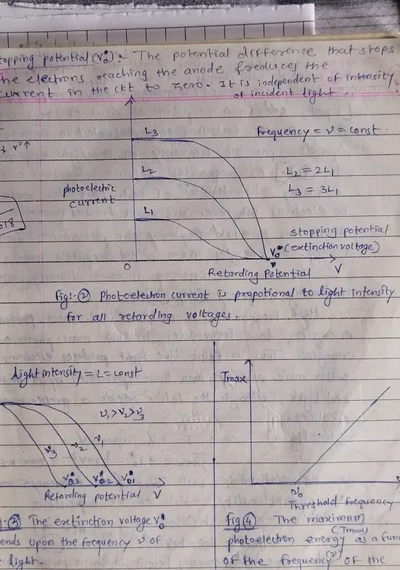 topping potential (V₀): The potential difference that stops
the electrons reaching the anode & reduces the
current in the ckt to zero. It is independent of intensity
of incident light.
ν↑
L3
Frequency = ν = const
L2
L2 = 2L1
L3 = 3L1
photoelectric
current
L1
stopping potential
V₀ (extinction voltage)
0
V
Retarding Potential
fig:-② Photoelectron current is propotional to light intensity
for all retarding voltages.
Light intensity = L = const
Tmax
ν1 > ν2 > ν3
ν3 ν2 ν1
V03 V02 V01
Retarding potential V
ν₀
Threshold frequency
③ The extinction voltage V₀
ends upon the frequency ν of
light.
fig ④ The maximum
photoelectron energy (Tmax) as a func
of the frequency (ν) of the